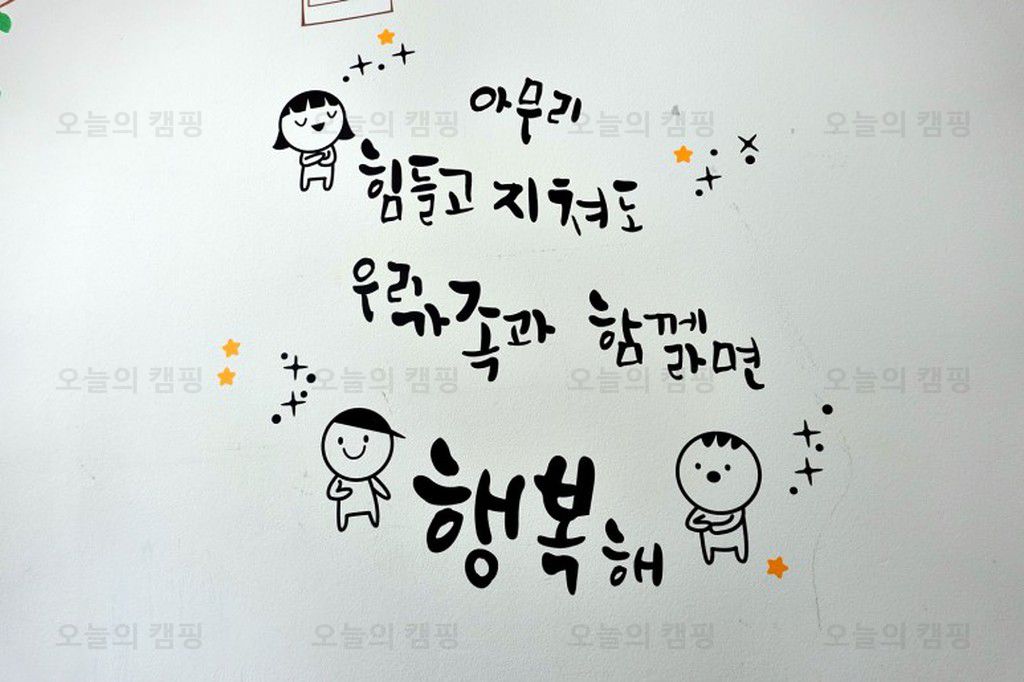 아무리
힘들고 지쳐도
우리가족과 함께라면
행복해
오늘의 캠핑 오늘의 캠핑 오늘의 캠핑 오늘의 캠핑
오늘의 캠핑 오늘의 캠핑 오늘의 캠핑 오늘의 캠핑
오늘의 캠핑 오늘의 캠핑 오늘의 캠핑 오늘의 캠핑